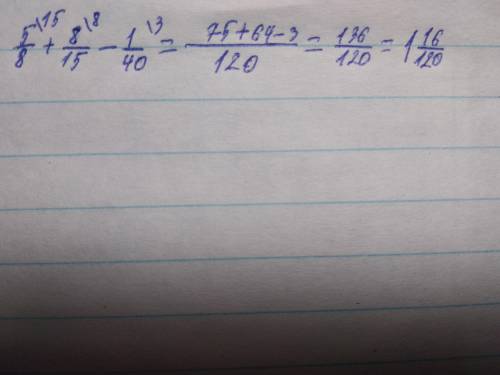 5\15/8 + 8\8/15 - 1\3/40 = 75+64-3/120 = 136/120 = 1 16/120